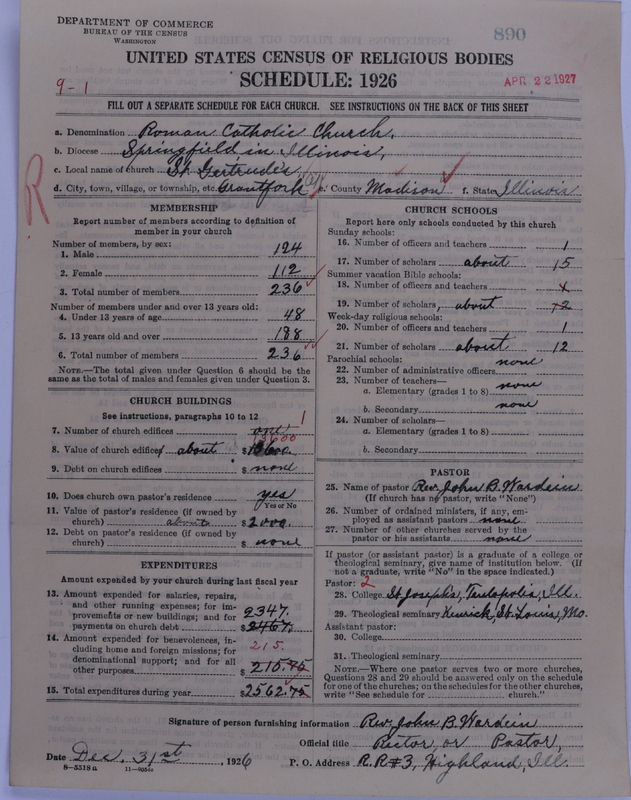 DEPARTMENT OF COMMERCE
BUREAU OF THE CENSUS
WASHINGTON
890
UNITED STATES CENSUS OF RELIGIOUS BODIES
SCHEDULE: 1926
9-1
APR 22 1927
FILL OUT A SEPARATE SCHEDULE FOR EACH CHURCH. SEE INSTRUCTIONS ON THE BACK OF THIS SHEET
a. Denomination Roman Catholic Church,
b. Diocese Springfield in Illinois,
c. Local name of church St. Gertrude's
d. City, town, village, or township, etc. Grantfork e. County Madison f. State Illinois
R
MEMBERSHIP
Report number of members according to definition of
member in your church
Number of members, by sex:
1. Male 124
2. Female 112
3. Total number of members 236
Number of members under and over 13 years old:
4. Under 13 years of age 48
5. 13 years old and over 188
6. Total number of members 236
NOTE.—The total given under Question 6 should be the
same as the total of males and females given under Question 3.
CHURCH BUILDINGS
See instructions, paragraphs 10 to 12
1
7. Number of church edifices one
8. Value of church edifices about $
9. Debt on church edifices $ none
10. Does church own pastor's residence yes
Yes or No
11. Value of pastor's residence (if owned by
church) about $ 2000.
12. Debt on pastor's residence (if owned by
church) $ none
EXPENDITURES
Amount expended by your church during last fiscal year
13. Amount expended for salaries, repairs,
and other running expenses; for im-
provements or new buildings; and for 2347.
payments on church debt $ 2467.
14. Amount expended for benevolences, in- 215.
cluding home and foreign missions; for
denominational support; and for all
other purposes $ 215.75
15. Total expenditures during year $ 2562.75
CHURCH SCHOOLS
Report here only schools conducted by this church
Sunday schools:
16. Number of officers and teachers 1
17. Number of scholars about 15
Summer vacation Bible schools:
18. Number of officers and teachers
19. Number of scholars, about
Week-day religious schools:
20. Number of officers and teachers 1
21. Number of scholars about 12
Parochial schools:
22. Number of administrative officers none
23. Number of teachers—
a. Elementary (grades 1 to 8) none
b. Secondary none
24. Number of scholars—
a. Elementary (grades 1 to 8)
b. Secondary
PASTOR
25. Name of pastor Rev. John B. Wardein
(If church has no pastor, write "None")
26. Number of ordained ministers, if any, em-
ployed as assistant pastors none
27. Number of other churches served by the
pastor or his assistants none
If pastor (or assistant pastor) is a graduate of a college or
theological seminary, give name of institution below. (If
not a graduate, write "No" in the space indicated.)
Pastor: 2
28. College St. Joseph's, Teutopolis, Ill.
29. Theological seminary Kenrick, St. Louis, Mo.
Assistant pastor:
30. College
31. Theological seminary
NOTE.—Where one pastor serves two or more churches,
Questions 28 and 29 should be answered only on the schedule
for one of the churches; on the schedules for the other churches,
write "See schedule for church."
Signature of person furnishing information Rev. John B. Wardein
Official title Rector or Pastor,
Date Dec. 31st, 1926 P. O. Address R.R#3, Highland, Ill.
8-5518a